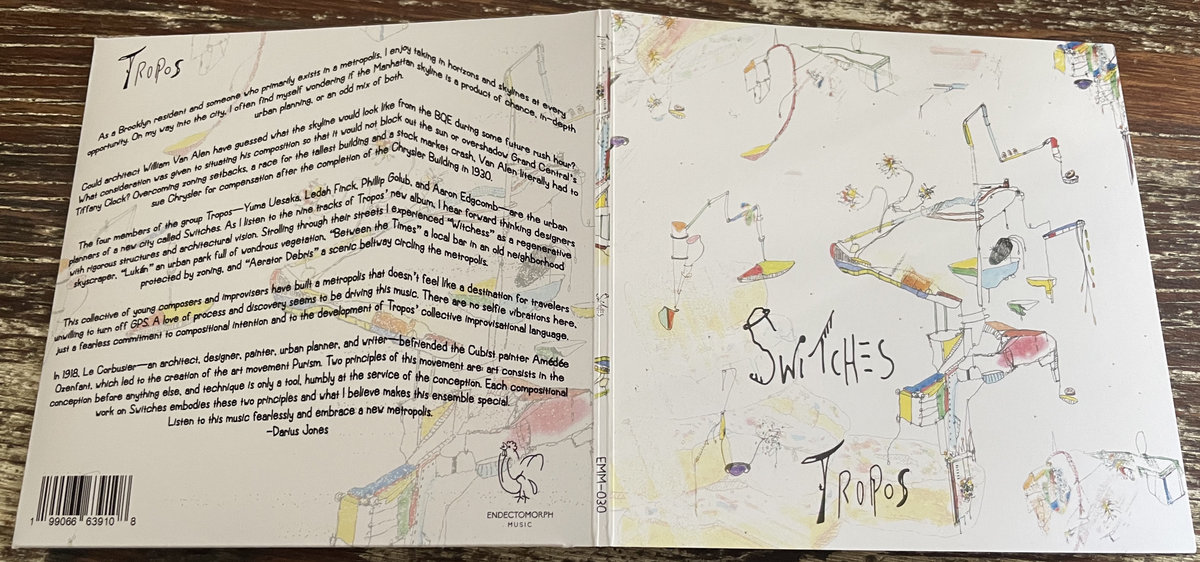 TROPOS
As a Brooklyn resident and someone who primarily exists in a metropolis, I enjoy taking in horizons and skylines at every
opportunity. On my way into the city, I often find myself wondering if the Manhattan skyline is a product of chance, in-depth
urban planning, or an odd mix of both.
Could architect William Van Alen have guessed what the skyline would look like from the BQE during some future rush hour?
What consideration was given to situating his composition so that it would not block out the sun or overshadow Grand Central's
Tiffany Clock? Overcoming zoning setbacks, a race for the tallest building and a stock market crash, Van Alen literally had to
sue Chrysler for compensation after the completion of the Chrysler Building in 1930.
The four members of the group Tropos—Yuma Uesaka, Ledah Finck, Phillip Golub, and Aaron Edgcomb—are the urban
planners of a new city called Switches. As I listen to the nine tracks of Tropos' new album, I hear forward thinking designers
with rigorous structures and architectural vision. Strolling through their streets I experienced "Witchess" as a regenerative
skyscraper, "Lukán" an urban park full of wondrous vegetation, "Between the Times" a local bar in an old neighborhood
protected by zoning, and "Aerator Debris" a scenic beltway circling the metropolis.
This collective of young composers and improvisers have built a metropolis that doesn't feel like a destination for travelers
unwilling to turn off GPS. A love of process and discovery seems to be driving this music. There are no selfie vibrations here,
just a fearless commitment to compositional intention and to the development of Tropos' collective improvisational language.
In 1918, Le Corbusier—an architect, designer, painter, urban planner, and writer—befriended the Cubist painter Amédée
Ozenfant, which led to the creation of the art movement Purism. Two principles of this movement are: art consists in the
conception before anything else, and technique is only a tool, humbly at the service of the conception. Each compositional
work on Switches embodies these two principles and what I believe makes this ensemble special.
Listen to this music fearlessly and embrace a new metropolis.
-Darius Jones
1 99066 63910 8
ENDECTOMORPH
MUSIC
Switches
EMM-030
SWITCHES
TROPOS